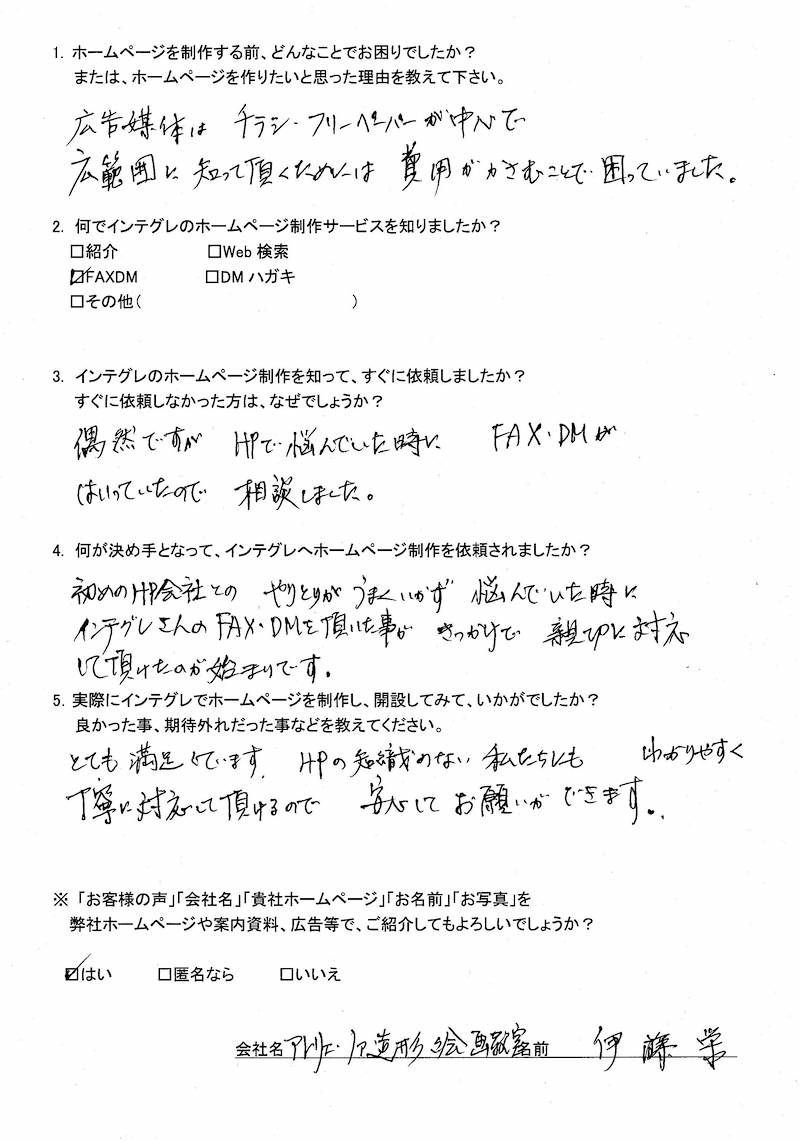 1. ホームページを制作する前、どんなことでお困りでしたか？
または、ホームページを作りたいと思った理由を教えて下さい。
広告媒体は チラシ・フリーペーパーが中心で
広範囲に知って頂くためには 費用がかさむことで困っていました。
2. 何でインテグレのホームページ制作サービスを知りましたか？
□紹介 □Web 検索
☑FAXDM □DM ハガキ
□その他( )
3. インテグレのホームページ制作を知って、すぐに依頼しましたか？
すぐに依頼しなかった方は、なぜでしょうか？
偶然ですが HPで悩んでいた時に FAX・DMが
はいっていたので 相談しました。
4. 何が決め手となって、インテグレへホームページ制作を依頼されましたか？
初めのHP会社との やりとりが うまくいかず 悩んでいた時に
インテグレさんの FAX・DMを頂いた事が きっかけで 親切に対応
して頂けたのが始まりです。
5. 実際にインテグレでホームページを制作し、開設してみて、いかがでしたか？
良かった事、期待外れだった事などを教えてください。
とても満足しています。HPの知識のない 私たちにも わかりやすく
丁寧に対応して頂けるので 安心して お願いができます。
※ 「お客様の声」「会社名」「貴社ホームページ」「お名前」「お写真」を
弊社ホームページや案内資料、広告等で、ご紹介してもよろしいでしょうか？
☑はい □匿名なら □いいえ
会社名 アトリエ・ノア造形絵画教室 名前 伊藤 栄